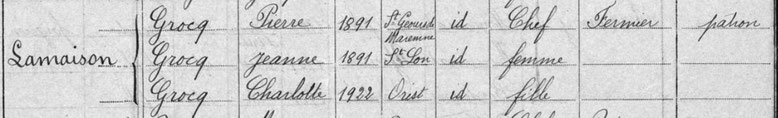 Grocq Pierre 1891 St Geours de Maremne id Chef Fermier patron
Lamaison Grocq Jeanne 1891 St Lon id femme
Grocq Charlotte 1922 Orist id fille